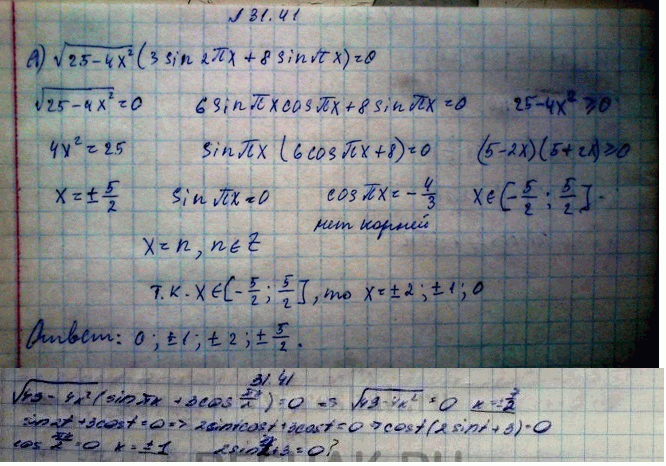 №31.41
а) √25-4x² (3 sin 2πx + 8 sin πx) = 0
√25-4x² = 0 6 sin πx cos πx + 8 sin πx = 0 25-4x² ≥ 0
4x² = 25 sin πx (6 cos πx + 8) = 0 (5-2x)(5+2x) ≥ 0
x = ± 5/2 sin πx = 0 cos πx = - 4/3 x ∈ [- 5/2 ; 5/2].
нет корней
x = n, n ∈ Z
т.к. x ∈ [- 5/2 ; 5/2], то x = ±2; ±1; 0
Ответ: 0; ±1; ±2; ± 5/2.
31.41
√49-4x² (sin πx + 3cos πx/2) = 0 => √49-4x² = 0
sin2t + 3cost = 0 => 2sintcost + 3cost = 0 => cost(2sint+3) = 0
cos πx/2 = 0 x = ±1 +3 = 0?